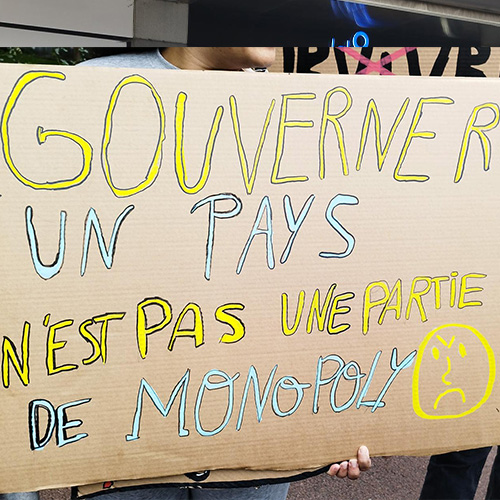 GOUVERNER
UN PAYS
N'EST PAS UNE PARTIE
DE MONOPOLY